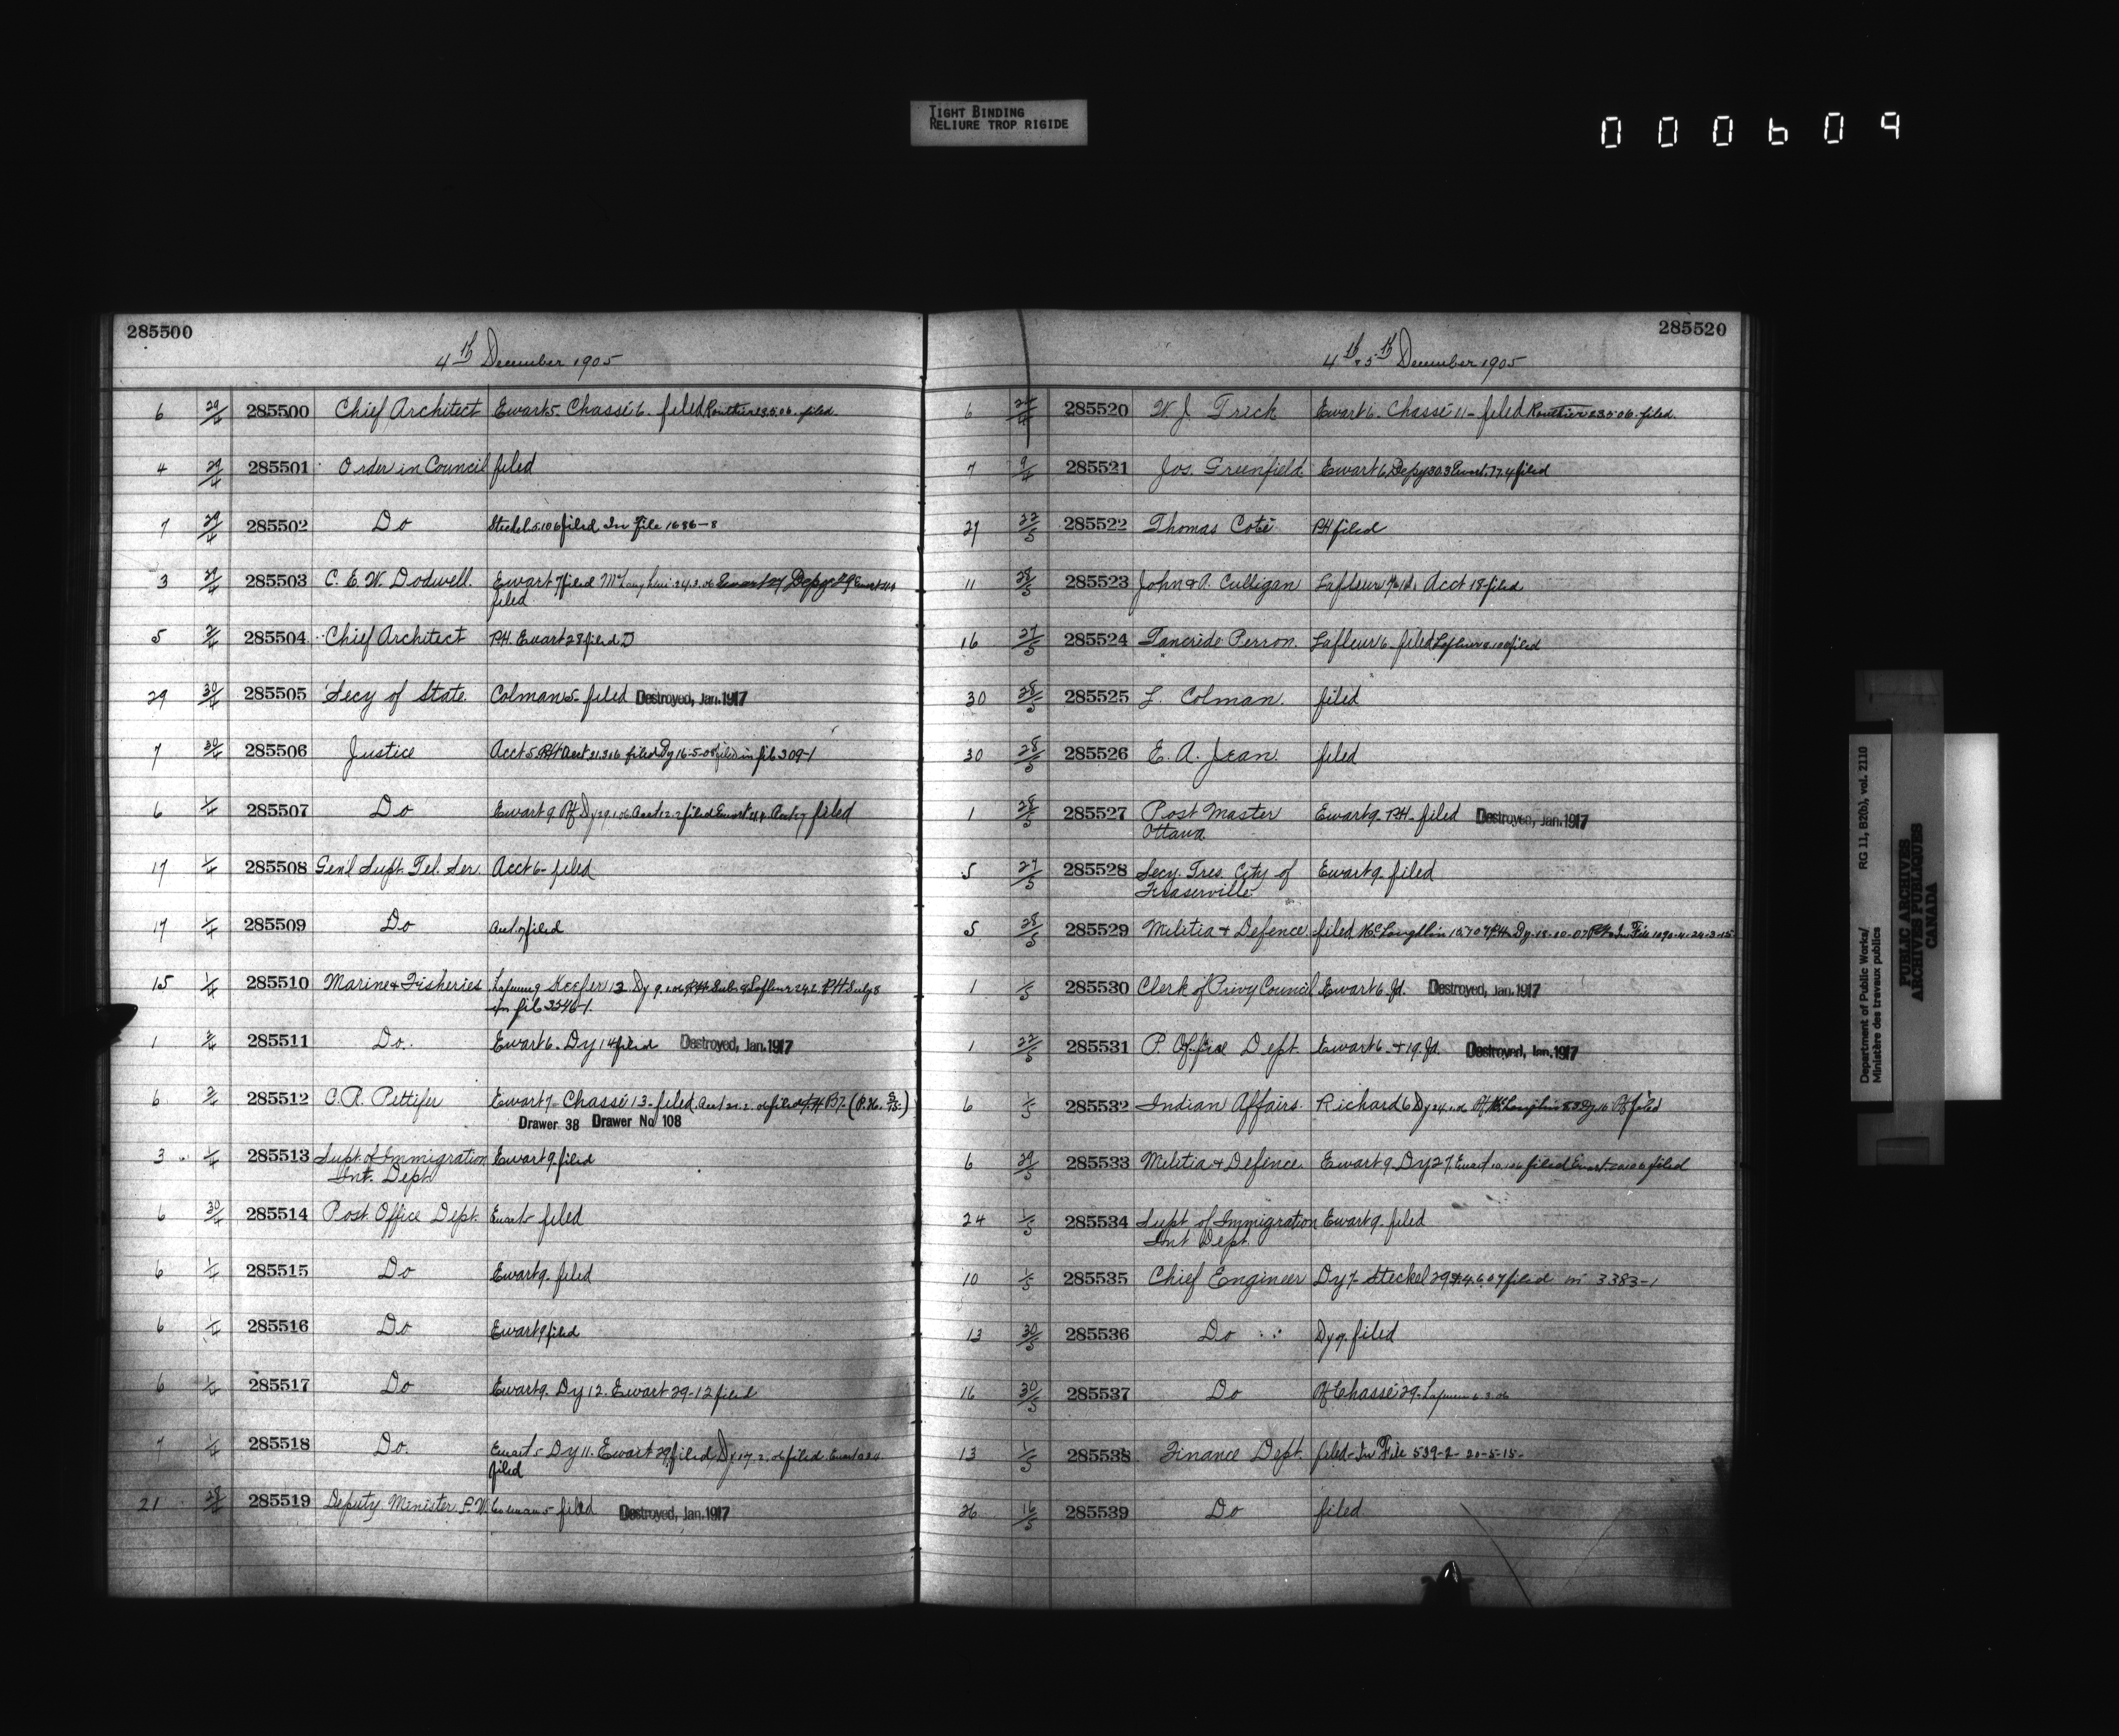 TIGHT BINDING
RELIURE TROP RIGIDE
000609
285500
4th December 1905
6 29/4 285500 Chief Architect Ewart 5. Chassé 6. filed Routhier 23.5.06. filed
4 29/4 285501 Order in Council filed
7 29/4 285502 Do Steckel 5.1.06 filed In File 1686-8
3 29/4 285503 C. E. W. Dodwell. Ewart 7 filed
filed
5 2/4 285504 Chief Architect P.H. Ewart 28 filed D
29 30/4 285505 Secy of State. Colman 5- filed Destroyed, Jan. 1917
7 30/4 285506 Justice Acct 5 PH Acct 31.3.06 filed Dy 16-5-08 filed in file 309-1
6 1/4 285507 Do Ewart 9 filed
17 1/4 285508 Gen'l Supt. Tel. Ser. Acct 6- filed
17 1/4 285509 Do Acct. 7 filed
15 1/4 285510 Marine & Fisheries Keefer 13
In file 3546-1.
1 2/4 285511 Do. Ewart 6. Dy 14 filed Destroyed, Jan. 1917
6 2/4 285512 C. R. Pettifer Ewart 7- Chassé 13- filed.
Drawer 38 Drawer No 108
3 1/4 285513 Supt. of Immigration Ewart 9. filed
Int. Dept.
6 30/4 285514 Post Office Dept. Ewart filed
6 1/4 285515 Do Ewart 9. filed
6 1/4 285516 Do Ewart 9 filed
6 1/4 285517 Do Ewart 9. Dy 12. Ewart 29-12 filed
7 1/4 285518 Do. Ewart 5 Dy 11. Ewart 29. filed, Dy 17.2.06 filed. Ewart
filed
21 28/4 285519 Deputy Minister P. W. Colman 5 filed Destroyed, Jan. 1917
285520
4th & 5th December 1905
6 285520 W. J. Trick Ewart 6. Chassé 11- filed Routhier 23.5.06. filed.
7 9/4 285521 Jos. Greenfield. Ewart 6. Depy 30.3 Ewart. 17.4 filed
27 22/5 285522 Thomas Coté PH filed
11 28/5 285523 John & A. Culligan Lafleur Acct 18- filed
16 27/5 285524 Tancrède Perron. Lafleur 6- filed Lafleur filed
30 28/5 285525 L. Colman. filed
30 28/5 285526 E. A. Jean. filed
1 28/5 285527 Post Master Ewart 9- PH- filed Destroyed, Jan. 1917
Ottawa
5 27/5 285528 Secy. Tres. City of Ewart 9- filed
Fraserville
5 28/5 285529 Militia & Defence filed, McLoughlin Dy. 18-10-07 In File 1090-4-24-3-15
1 1/5 285530 Clerk of Privy Council Ewart 6. fd. Destroyed, Jan. 1917
1 22/5 285531 P. Office Dept. Ewart 6. + 19. fd. Destroyed, Jan. 1917
6 1/5 285532 Indian Affairs. Richard 6 filed
6 29/5 285533 Militia & Defence. Ewart 9. Dy 27. Ewart filed Ewart filed
24 1/5 285534 Supt. of Immigration Ewart 9- filed
Int Dept.
10 1/5 285535 Chief Engineer Dy 7- Steckel 29 4.6.07 filed in 3383-1
13 30/5 285536 Do Dy 9. filed
16 30/5 285537 Do Chassé 29- 6.3.06
13 1/5 285538 Finance Dept. filed- In File 539-2- 20-5-15-
26 16/5 285539 Do filed
Department of Public Works/ RG 11, B2(b), vol. 2110
Ministère des travaux publics
PUBLIC ARCHIVES
ARCHIVES PUBLIQUES
CANADA